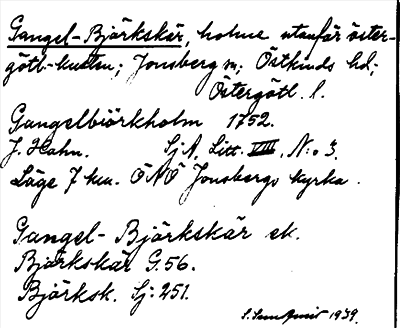 Gangel-Björkskär, holme utanför öster-
götl-kusten; Jonsberg sn; Östkinds hd;
Östergötl. l.
Gangelbiörkholm 1752.
J. Hahn. Sj A. Litt. VIII, N:o 3.
Läge 7 km. ÖNÖ Jonsbergs kyrka.
Gangel- Björkskär ek.
Björkskär G. 56.
Björksk. Sj: 251.
1939.